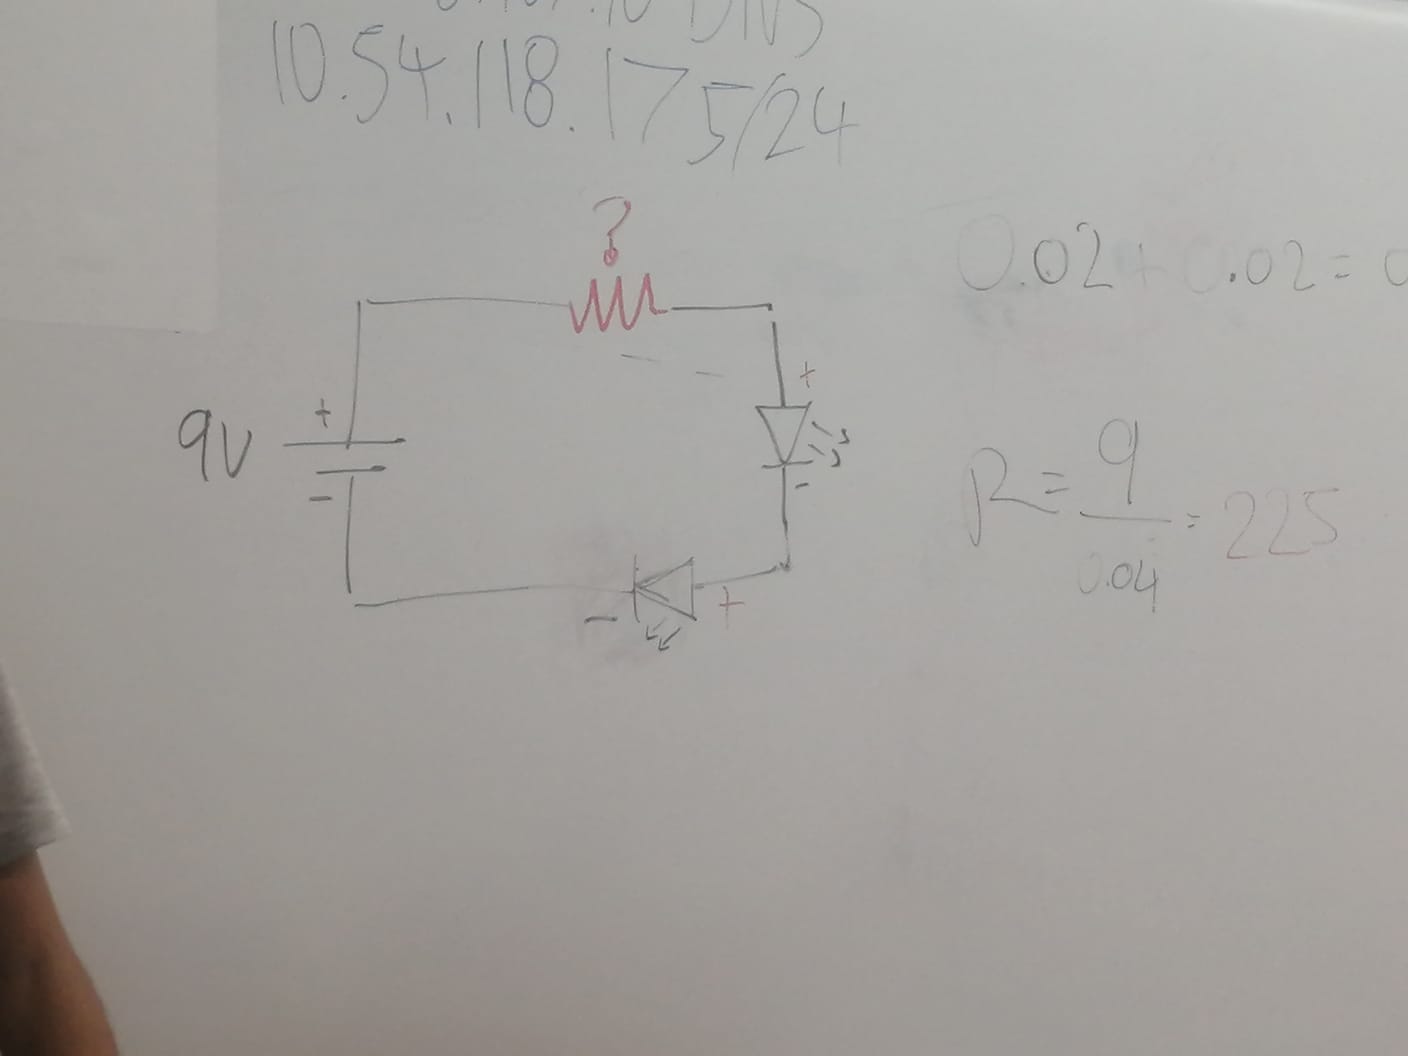 10.54.118.175/24
?
+
9V
+
-
-
-
+
0.02+0.02=
R=9/0.04=225